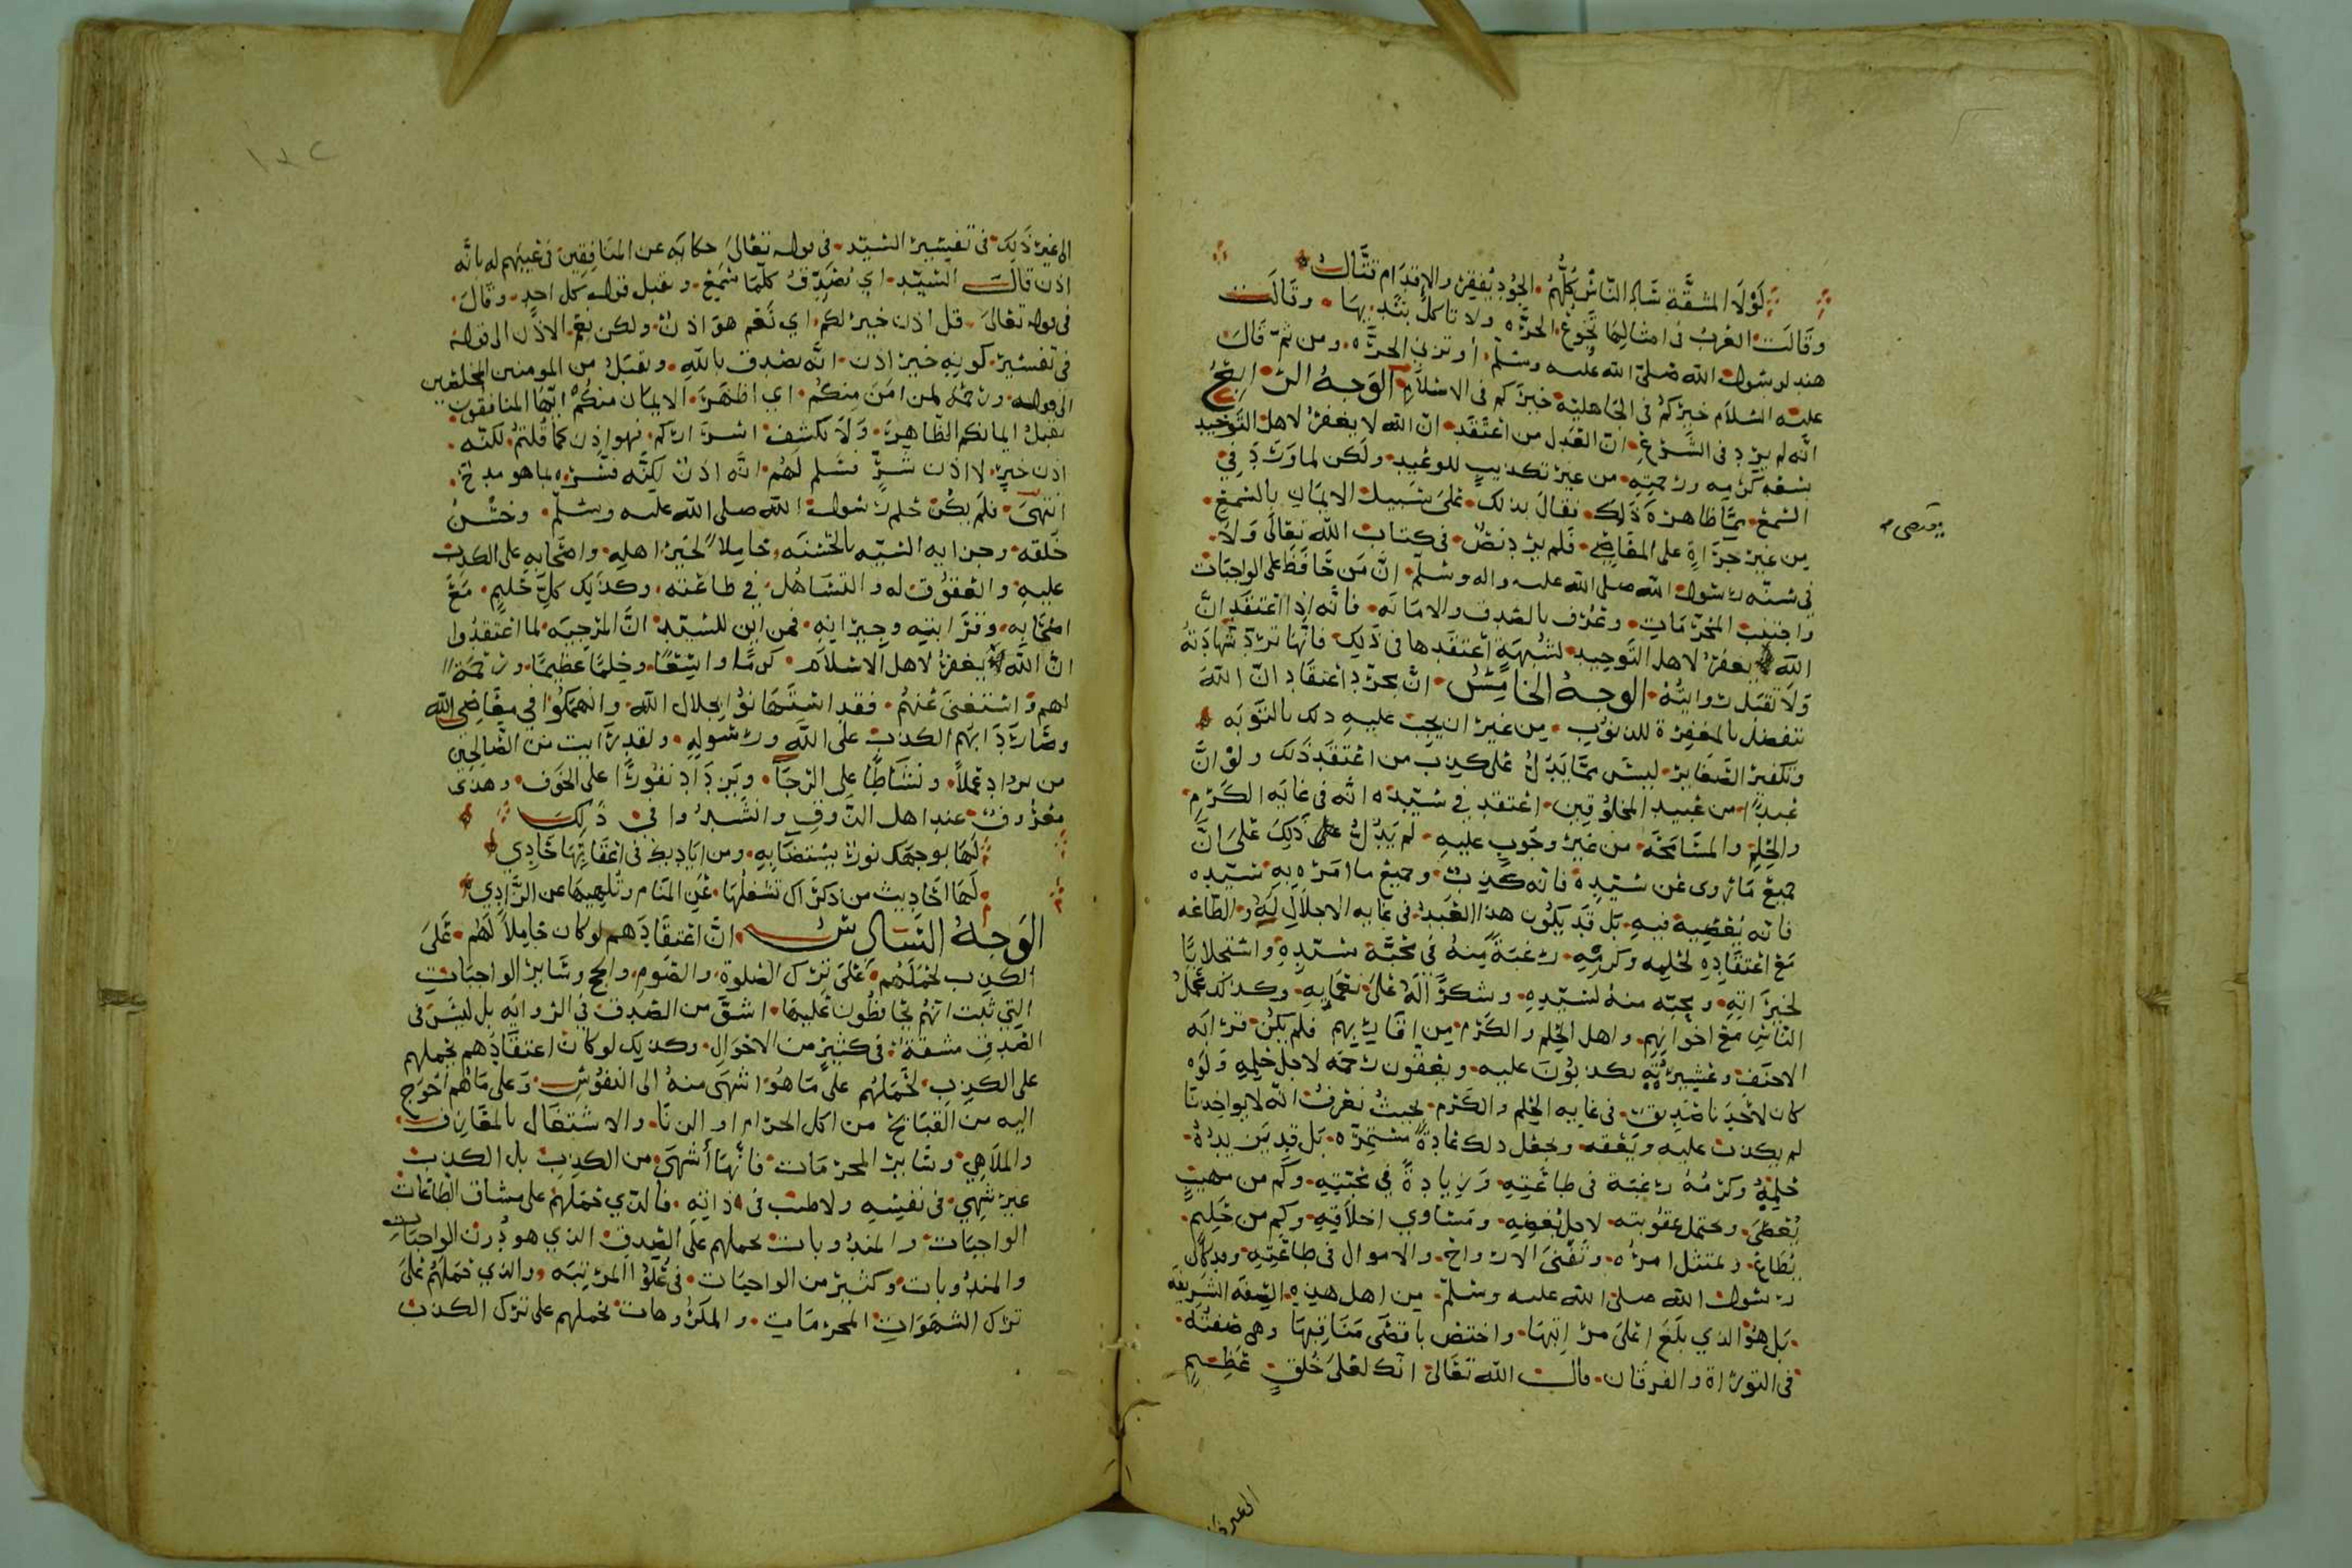 لَوْلَا المشقَّة سَاد النّاسُ كُلُّهُمُ • الجُودُ يُفقِرُ والإِقدَام قتَّالُ
وقَالَت العَرَبُ في امثالِها تَجُوعُ الحُرّه ولا تاكلُ بثَدْيهَا • وقَالَت
هند لرسُول الله صَلّى الله عليه وسَلّم أوتَزنِي الحرَّه • ومن ثمّ قَالَ
عليه السَّلام خيركُم في الجَاهليّة خيرَكم في الاسْلَامِ الوَجهُ الرَّابِعُ
أنَّه لم يرِد في الشَّرْعِ • انّ العَدل من اعتَقَد انّ الله لا يغفرُ لاهلِ التَّوحِيد
بسَعَه كرَمِه ورحمَتِه • من غير تكذيبٍ للوَعِيد • ولَكن لما وَرَدَ فِي
السَّمع • ممَّا ظَاهرُه ذَلِكَ • فقَالَ بذلكَ • عَلى سَبيل الايمَان بالسَّمعِ •
مِن غَير جَرَاةٍ على المعَاصِي • فلَم يَرِد نَصٌّ • في كتاب الله تعَالَى وَلَا •
في سُنّة رسُول الله صَلى الله عليه واله وسَلّم • انّ مَن حَافَظَ على الواجبَات
واجتنبَ المُحرَّمَات • وعُرِف بالصّدق والامَانَه • فانّه إذا اعتقَد انَّ
الله يغفرُ لاهل التَّوحِيد • لشُبهَةٍ اعتَقَدها في ذَلِكَ • فانّهَا تُرَدّ شَهادَتهُ
وَلَا تقبَل روايتُهُ • الوجهُ الخَامِسُ • انّ مجرّد اعتقَاد انّ اللهَ
يتفضلُ بالمغفِرَة للذنوُب • مِن غيرِ ان يجبَ عليهِ ذلك بالتَّوبَه
وتكفير الصَّغاير • ليسَ ممَّا يَدُلُّ على كذِب من اعتقَدَ ذَلك ولَوْ انَّ
عَبدًا من عَبيد المخلُوقِين • اعتقد في سَيّدِه انّه في غَايَه الكَرَم •
والحِلمِ والمسَامَحَه • من غَير وجُوبٍ عليه • لم يَدُلّ ذَلِكَ عَلى انَّ
جميعَ مَا رَوى عَن سَيّدِه فانه كَذِبٌ • وجميعَ ما امَرَه بهِ سَيّدِه
فانّه يُعصِيه فيهِ • بَل قَد يكُون هذا العَبدُ في غايه الاجلَالِ لَهُ والطَّاعه
مَعَ اعتقَادِهِ لحِلمِه وكَرمِهِ • رغبَةً مِنهُ في مَحبَّة سَيّدهِ واستجلابًا
لخيرَاتِهِ • ومحبّه منهُ لسَيّدهِ • وشكرًا لَهُ عَلَى نَعْمَايهِ • وكذلكَ عَمَلُ
النّاسِ مَعَ اخوَانِهِم • واهل الحِلم والكَرَم من اقَارِبِهِم فلَم يكُن قرَابَه
الاحنَف وعَشِيرَتُه يكذبُونَ عليه • ويَعُقُّون رحمَه لاجل حِلمهِ وَلَو
كان لاحَدِنا صَدِيقٌ • في غايه الحِلم والكَرَم • بحيثُ نَعرفُ انّه لا يواخِذنا
لم يكذِب عليه ويَعُقه • ويجعَل ذلك عَادةً مُستَمِرَّه • بَل قد يَزِيدهُ •
حِلمُهُ وكَرَمُهُ رغبَة في طَاعَتِهِ • وَزيادةً في مَحبّتِهِ • وكَم من مهيبٍ
يُعصَى • وتحتمل عقُوبته • لاجل بُغضِهِ • ومَسَاوي اخلَاقِهِ • وكَم من حَلِيمٍ •
يُطَاعُ • ويمتثل امرُه • وتَفنَى الارواحُ • والاموال في طَاعَتِهِ • وقد كَانَ
رسُول الله صلى الله عليه وسَلّم • من اهل هذِهِ الصّفَه الشَّرِيفَه
بَل هُوَ الذي بلَغَ اعلَى مرَاتِبهَا • واختصّ باقصَى مَنَاقِبهَا وهي صِفتُهُ •
في التورَاة والفرقَان • قالَ الله تعَالَى انّك لعَلَى خُلقٍ عَظِيمٍ
الى غير ذَلِكَ • في تفسِير السّيّد • في قوله تعَالَى حكايَه عن المنَافِقِين في عَيبِهم له بانّه
اذن قالَ السّيّد • اي يُصَدِّقُ كلّمَا سَمِعَ • ويقبل قوله كل احدٍ • وقَالَ •
في قوله تعَالَى • قل اذن خير لكم • اي نَعَم هوَ اذنٌ • ولكن نِعمَ الاذُن الى قوله
في تفسير • كونِه خير اذن • انّه يصَدق باللهِ • ويقبَلُ من المومنين المخلصين
الى قوله • ورحمَة لمن امَنَ مِنكُم • اي اظهَرَ الايمَان منكُم ايّهَا المنافِقُون
تقبلُ ايمانكم الظّاهِرَ • وَلَا يكشف اسرَاركم • فهو اذن كما قُلتُم • لكنّه •
اذن خيرٍ • لا اذن شَرٍّ فسَلم لَهُم • انَّه اذنٌ لكِنّه فسّره بما هو مدحٌ •
انتهَى • فلَم يكُن حُلم رسُول الله صلى الله عليه وسَلّم • وحُسْنُ
خَلقه • وجرايه السّيّيه بالحَسَنَه • حَامِلًا لجَيرَاهلهِ • واصحَابه على الكذب
عليهِ • والعقُوق له والتَّسَاهُل في طاعَته • وكذَلِك كلّ حَليمٍ • مَعَ
اصحَابِه • وقَرَابتهِ وجِيرَانهِ • فمن اين للسّيّد انّ المرجِيَه • لما اعتقدُوا
انّ الله يغفرُ لاهل الاسْلَام • كرمًا واسِعًا • وحِلمًا عَظيمًا • ورَحمَة
لهم واستغنىَ عَنهُم • فقد استَهَانوا بجلَال الله • وانهمكُوا في مَعَاصِي الله
وصَارَ دَابَهُم الكذبَ عَلى اللهِ ورسُولِهِ • ولقد رَايت من الصَّالِحِين
من يزدَاد عَملًا • ونشَاطًا على الرّجَا • ويَزدَاد نفُورًا على الخوف • وهذا
مَعرُوفٌ عند اهل الذّوقِ وانشَدُوا في ذَلِكَ
لهَا بوجهِك نورٌ يستضَابهِ • ومن اياديكَ في اعقَابهَا حَادِي
لهَا احَاديث من ذكرَاك تشغلُهَا • عَنِ المنَام وتُلهِيهَا عن الزَّادِي
الوَجهُ السَّادِسُ • انّ اعتقَادَهم لوكان حَامِلًا لَهُم • عَلَى
الكذِب لحمَلَهُم • عَلَى ترك الصَّلوة • والصَّوم • والحج وسَاير الواجبَات
التِي ثبت انّهُم يُحَافِظُون عَليهَا • اشقّ من الصّدق في الرّوايَه بل ليسَ في
الصّدقِ مشقّةٌ • في كثيرٍ من الاحوَالِ • وكذلِك لوكَانَ اعتقَادُهم يحملهم
على الكذِب • لحمَلهُم على مَا هُوَ اشهَى منهُ الى النفوُسِ • وَعَلَى مَا هُم احوَج
اليه من القبَايح من اكل الحرَام او الزنَا • والاشتغَال بالمعَازف •
والملَاهي • وسَاير المحرّمَات • فانّهَا أشهَى • من الكذِب بل الكذِب
غير شهِيّ • في نفسِهِ ولا طيب في ذاتِهِ • فالذي حَملَهُم على مشاق الطّاعَات
الواجبَات • والمندُوبات يحملهم عَلَى الصّدق الذي هو دُون الواجبَات
والمندُوبات • وكثير من الواجبَات • في عُلوّ المرتبَه • والذي حَملَهُم عَلَى
ترك الشّهَوَاتِ • المحرّمَات • والمكرُوهات يحملهم على ترك الكذب